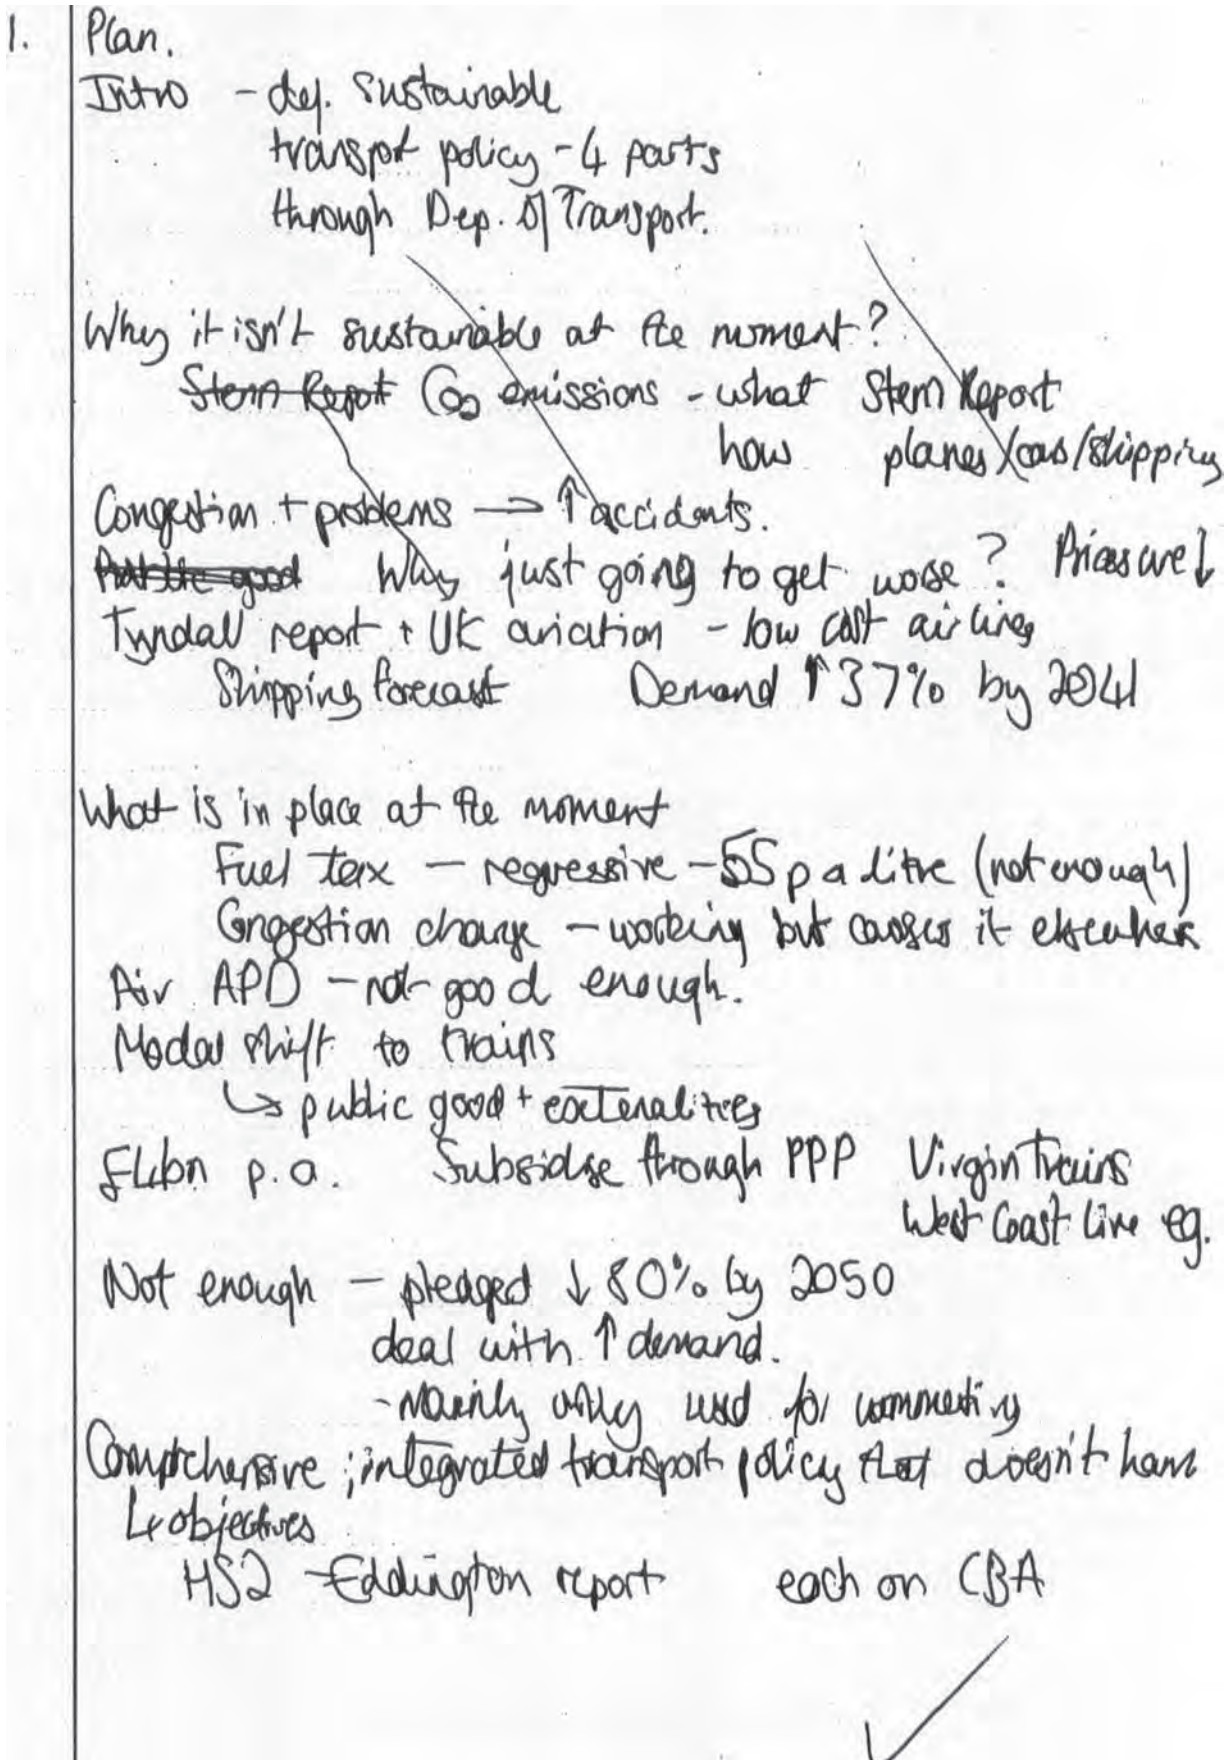 1. Plan.
Intro - def. sustainable
transport policy - 4 parts
through Dep. of Transport.
Why it isn't sustainable at the moment?
Stern Report CO2 emissions - what Stern Report
how planes/cars/shipping
Congestion + problems → ↑ accidents.
Public good Why just going to get worse? Prices are ↓
Tyndall report + UK aviation - low cost airlines
Shipping forecast Demand ↑ 37% by 2041
What is in place at the moment
Fuel tax - regressive - 55p a litre (not enough)
Congestion charge - working but causes it elsewhere
Air APD - not good enough.
Modal shift to trains
↳ public good + externalities
£4bn p.a. Subsidise through PPP Virgin Trains
West Coast Line eg.
Not enough - pledged ↓ 80% by 2050
deal with ↑ demand.
- Mainly only used for commuting
Comprehensive; integrated transport policy that doesn't harm
4 objectives
HS2 - Eddington report each on CBA